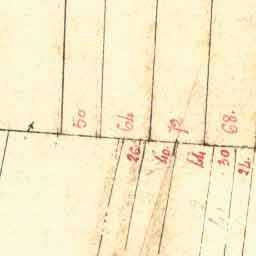 50
64
72
68.
26.
40.
44
30
24.